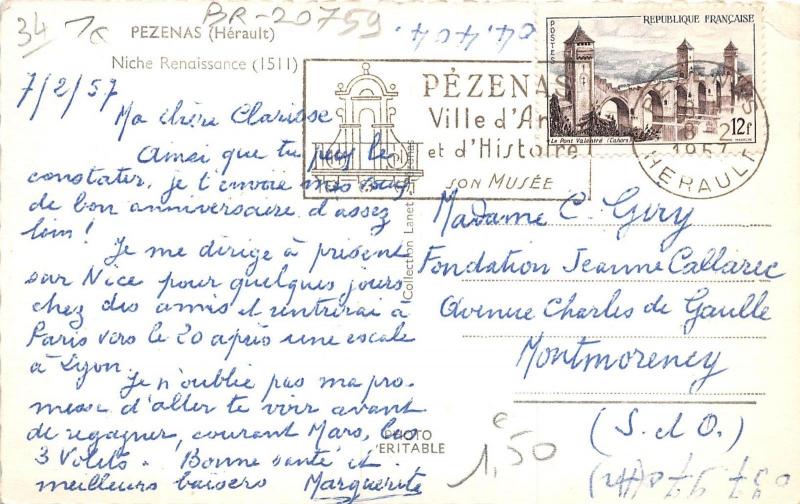 34 1c
BR-20759
04.404.
PEZENAS (Hérault)
Niche Renaissance (1511)
7/2/57
Ma chère Clarisse
Ainsi que tu peux le
constater, je t'envoie mes
de bon anniversaire d'assez
loin!
Je me dirige à présent
sur Nice pour quelques jours
chez des amis et rentrirai à
Paris vers le 20 après une escale
à Lyon.
Je n'oublie pas ma pro-
messe d'aller te voir avant
de regagner, courant Mars, les
3 Volets. Bonne santé et
meilleurs baisers Marguerite
Collection Lanet
PHOTO
VERITABLE
PÉZENAS
Ville d'Art
et d'Histoire
SON MUSÉE
REPUBLIQUE FRANÇAISE
POSTES
Le Pont Valentré (Cahors)
12f
8 2
1957
HERAULT
Madame C. Giry
Fondation Jeanne Callarec
Avenue Charles de Gaulle
Montmorency
(S. et O.)
1,50 €